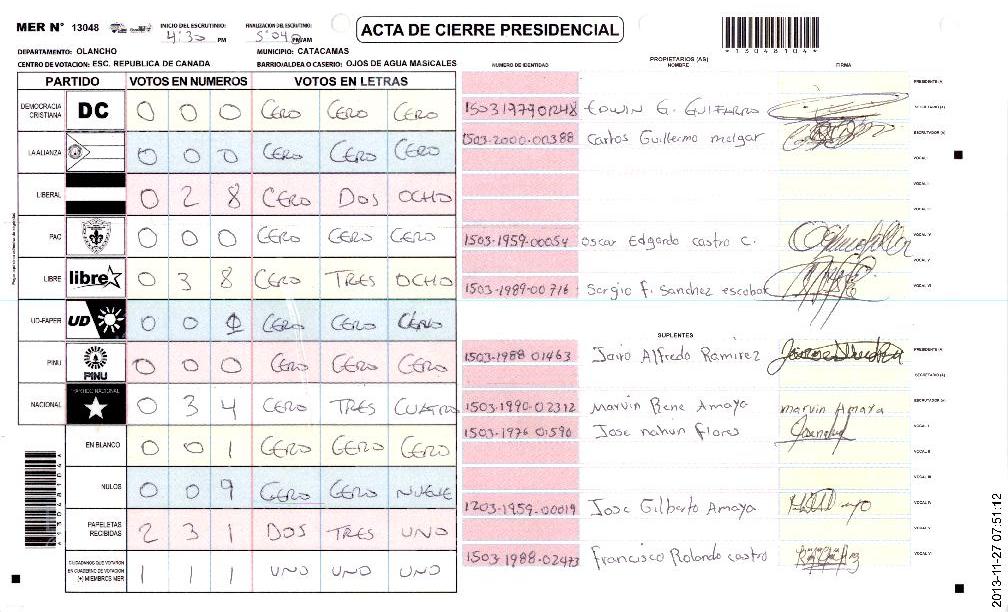 MER N° 13048 INICIO DEL ESCRUTINIO: 4:30 PM FINALIZACION DEL ESCRUTINIO: 5:04 PM/AM
ACTA DE CIERRE PRESIDENCIAL
*13048104*
DEPARTAMENTO: OLANCHO MUNICIPIO: CATACAMAS
CENTRO DE VOTACION: ESC. REPUBLICA DE CANADA BARRIO/ALDEA O CASERIO: OJOS DE AGUA MASICALES
PARTIDO VOTOS EN NUMEROS VOTOS EN LETRAS
DEMOCRACIA CRISTIANA DC 0 0 0 CERO CERO CERO
LA ALIANZA 0 0 0 CERO CERO CERO
LIBERAL 0 2 8 CERO DOS OCHO
PAC 0 0 0 CERO CERO CERO
LIBRE libre 0 3 8 CERO TRES OCHO
UD-FAPER UD 0 0 0 CERO CERO CERO
PINU PINU 0 0 0 CERO CERO CERO
NACIONAL PARTIDO NACIONAL 0 3 4 CERO TRES CUATRO
EN BLANCO 0 0 1 CERO CERO CERO
NULOS 0 0 9 CERO CERO NUEVE
PAPELETAS RECIBIDAS 2 3 1 DOS TRES UNO
CIUDADANOS QUE VOTARON EN CUADERNO DE VOTACION (+) MIEMBROS MER 1 1 1 UNO UNO UNO
PROPIETARIOS (AS)
NUMERO DE IDENTIDAD NOMBRE FIRMA
PRESIDENTE (A)
1503197901248 EDWIN G. GUIFARRO SECRETARIO (A)
1503-2000-00388 Carlos Guillermo melgar ESCRUTADOR (A)
VOCAL I
VOCAL II
VOCAL III
1503-1959-00054 Oscar Edgardo castro c. VOCAL IV
VOCAL V
1503-1989-00716 Sergio f. Sanchez escobar VOCAL VI
SUPLENTES
1503-1988 01463 Jairo Alfredo Ramirez PRESIDENTE (A)
SECRETARIO (A)
1503-1990-02312 Marvin Rene Amaya marvin Amaya ESCRUTADOR (A)
1503-1976 01590 Jose nahun flores VOCAL I
VOCAL II
VOCAL III
1203-1959-00019 Jose Gilberto Amaya VOCAL IV
VOCAL V
1503-1988-02473 francisco Rolando castro VOCAL VI
2013-11-27 07:51:12